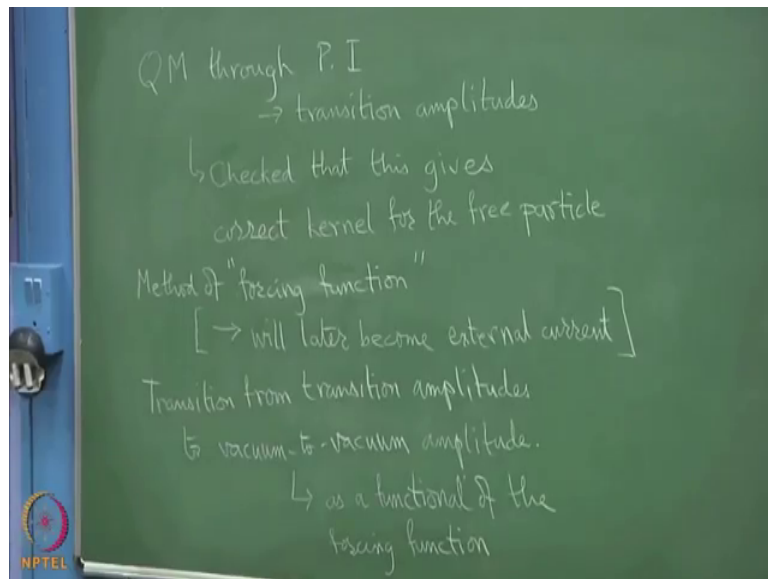 QM through P.I
→ transition amplitudes
↳ Checked that this gives
correct kernel for the free particle
Method of "forcing function"
[→ will later become external current]
Transition from transition amplitudes
to vacuum-to-vacuum amplitude.
↳ as a functional of the
forcing function
NPTEL